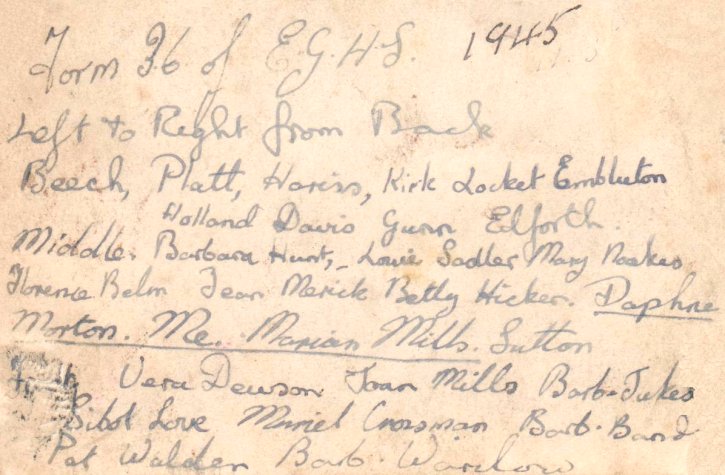 Form 3b of E.G.H.S. 1945
Left to Right from Back
Beech, Platt, Hariss, Kirk Locket Embleton
Holland Davis Gunn Edforth.
Middle. Barbara Hunt, Louie Sadler Mary Noakes
Florence Belm Jean Merick Betty Hicken. Daphne
Morton. Me. Marian Mills. Sutton
Vera Dewson Joan Mills Barb. Jukes
Love Muriel Crosman Barb. Band
Pat Walden Barb.